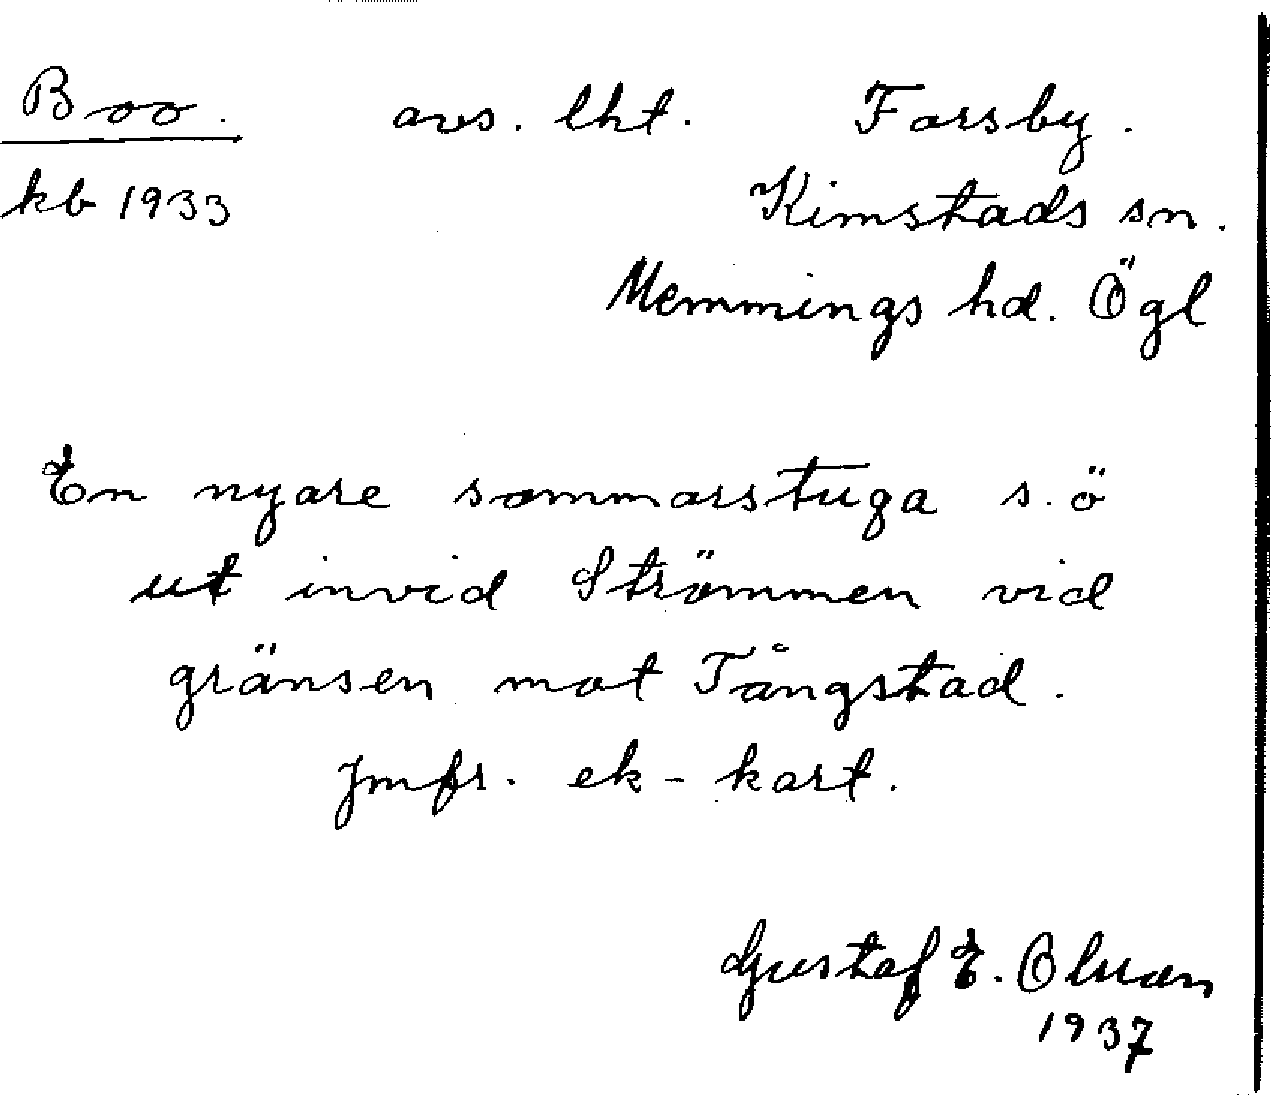 Boo. avs. lht. Forsby.
kb 1933 Kimstads sn.
Memmings hd. Ögl
En nyare sommarstuga s.ö
ut invid Strömmen vid
gränsen mot Tångstad.
Jmfr. ek-kart.
Gustaf E. Olson
1937